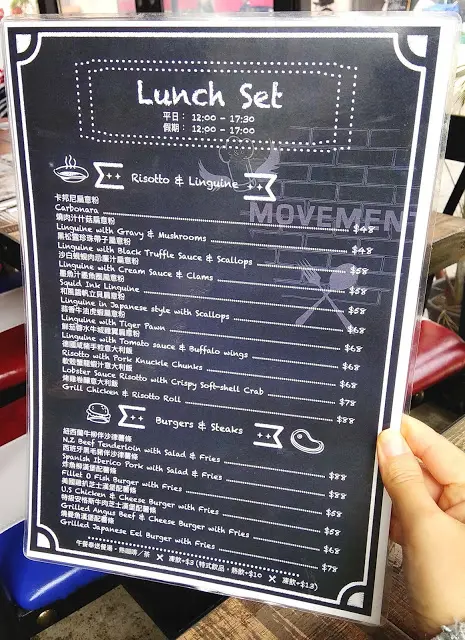 Lunch Set
平日： 12:00 - 17:30
假期： 12:00 - 17:00
MOVEMENT
Risotto & Linguine
卡邦尼扁意粉
Carbonara $48
燒肉汁什菇扁意粉
Linguine with Gravy & Mushrooms $48
黑松露珍珠帶子扁意粉
Linguine with Black Truffle Sauce & Scallops $58
沙白蜆蜆肉忌廉汁扁意粉
Linguine with Cream Sauce & Clams $58
墨魚汁墨魚圈扁意粉
Squid Ink Linguine $58
和風醬帆立貝扁意粉
Linguine in Japanese style with Scallops $68
蒜香牛油虎蝦扁意粉
Linguine with Tiger Pawn $68
鮮茄蓉水牛城雞翼扁意粉
Linguine with Tomato sauce & Buffalo wings $68
德國咸豬手粒意大利飯
Risotto with Pork Knuckle Chunks $68
軟殼蟹龍蝦汁意大利飯
Lobster Sauce Risotto with Crispy Soft-shell Crab $78
烤雞卷釀意大利飯
Grill Chicken & Risotto Roll $88
Burgers & Steaks
紐西蘭牛柳伴沙律薯條
N.Z Beef Tenderloin with Salad & Fries $88
西班牙黑毛豬伴沙律薯條
Spanish Iberico Pork with Salad & Fries $88
炸魚柳漢堡配薯條
Fillet O Fish Burger with Fries $58
美國雞扒芝士漢堡配薯條
U.S Chicken & Cheese Burger with Fries $58
特級安格斯牛肉芝士漢堡配薯條
Grilled Angus Beef & Cheese Burger with Fries $68
燒鰻魚漢堡配薯條
Grilled Japanese Eel Burger with Fries $78
午餐奉送餐湯，熱咖啡／茶 × 凍飲+$3 (特式飲品，熱飲+$10 × 凍飲+$13)